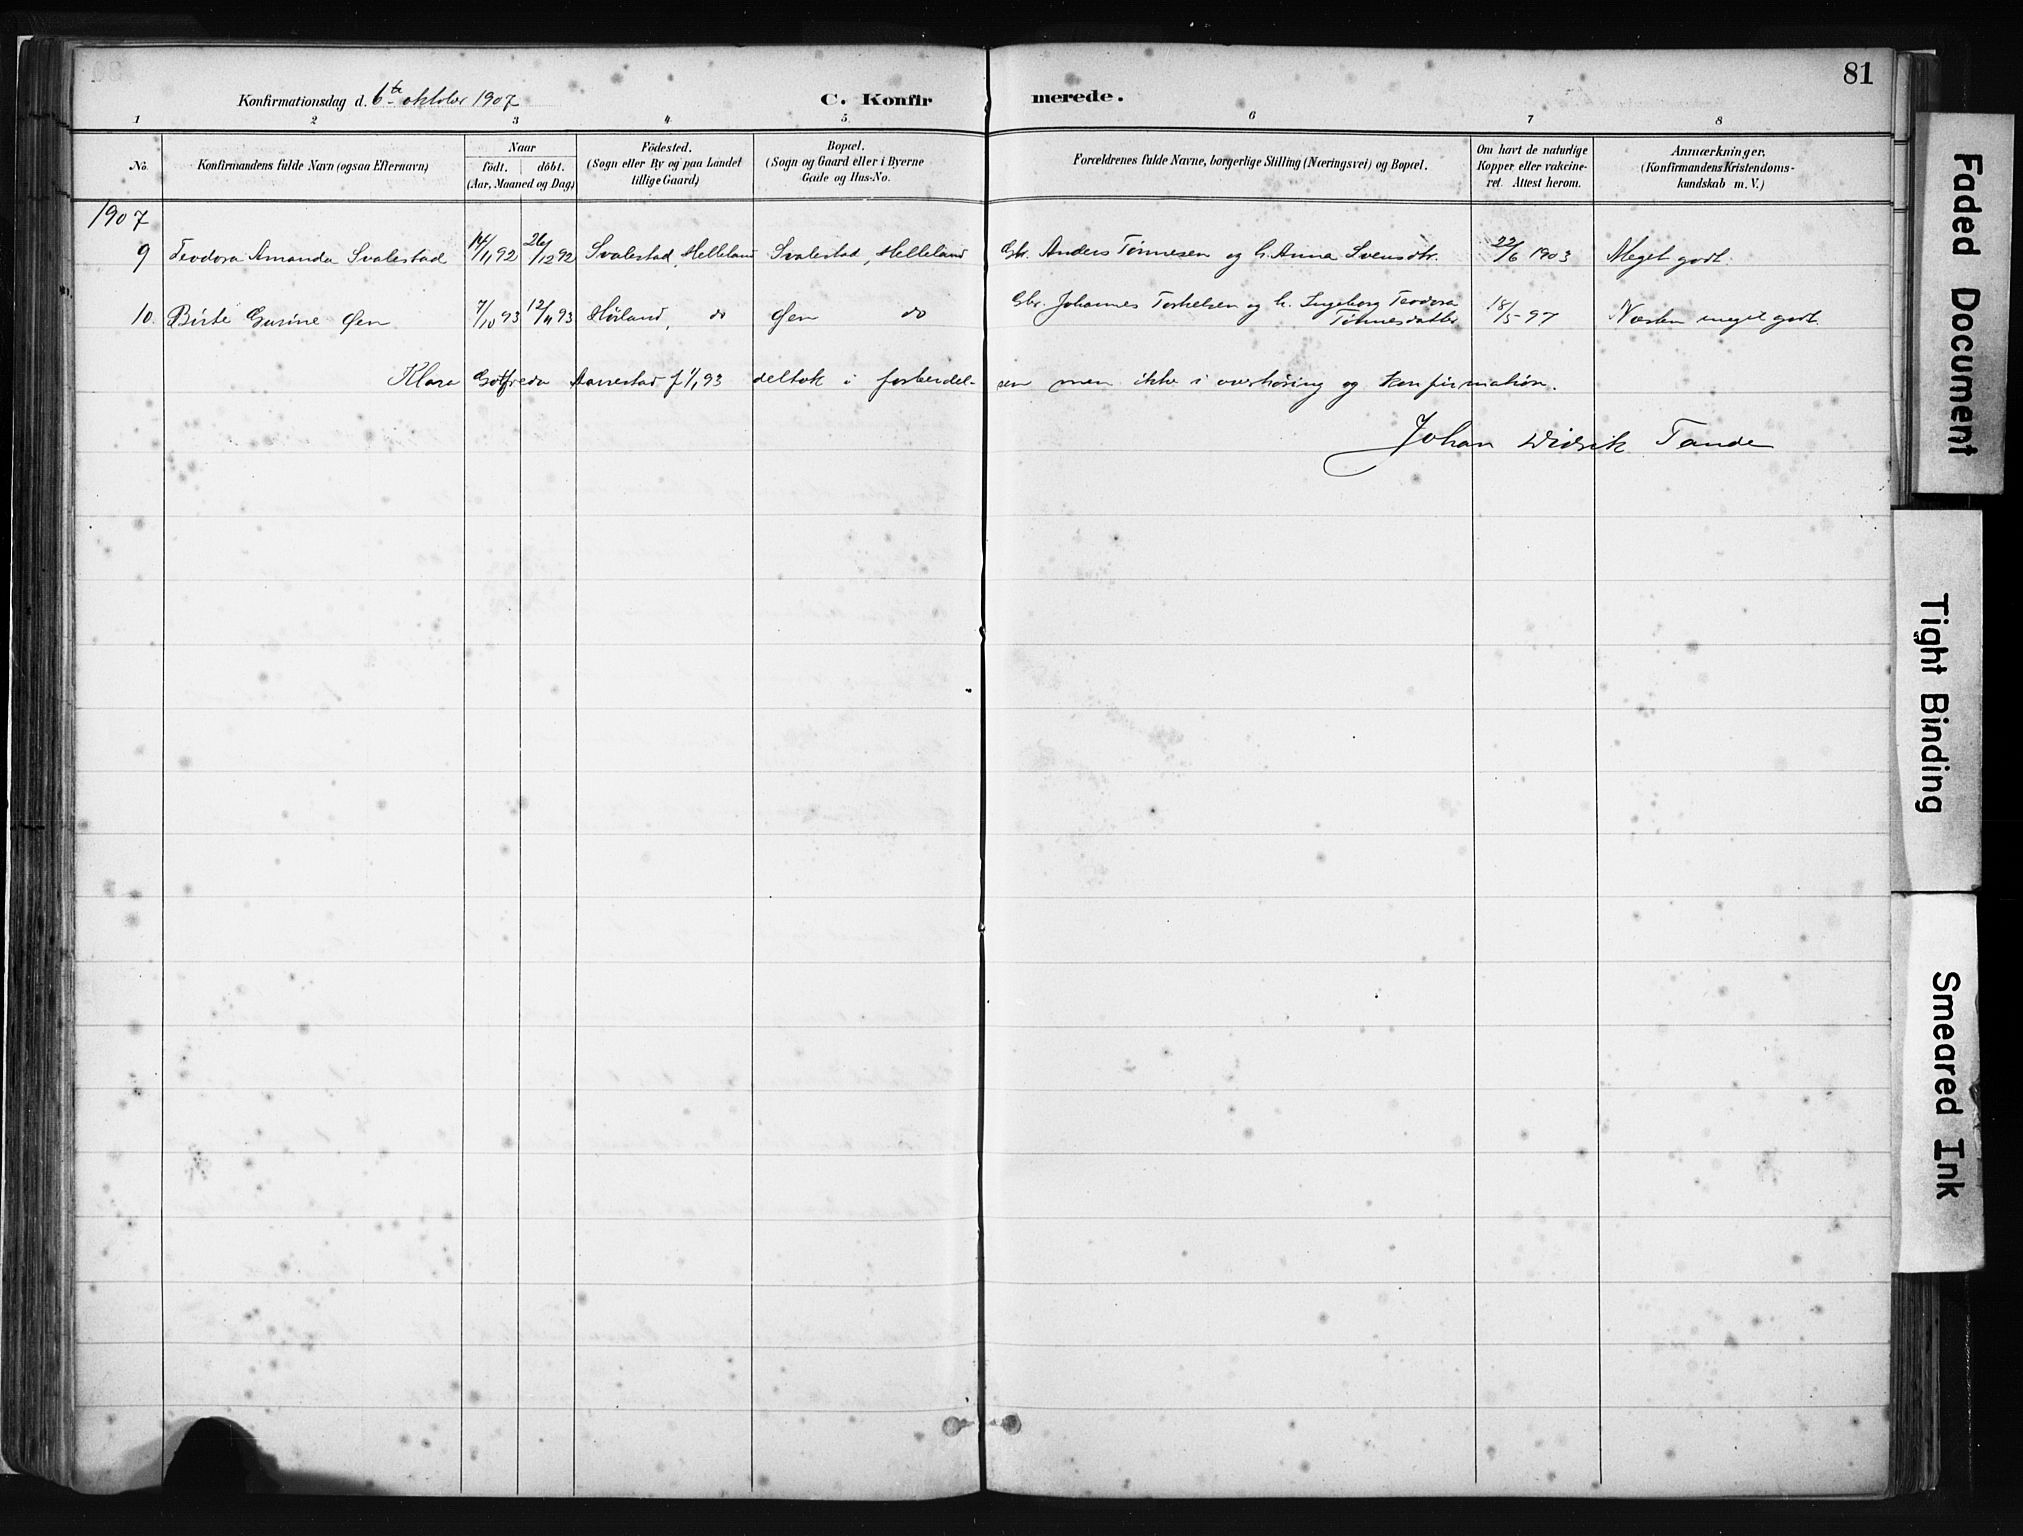 81
Konfirmationsdag d. 6te oktober 1907
C. Konfirmerede.
1 2 3 4 5 6 7 8
No. Konfirmandens fulde Navn (ogsaa Efternavn) Naar födt. döbt. (Aar, Maaned og Dag) Födested. (Sogn eller By og paa Landet tillige Gaard) Bopæl. (Sogn og Gaard eller i Byerne Gade og Hus-No. Forældrenes fulde Navne, borgerlige Stilling (Næringsvei) og Bopæl. Om havt de naturlige Kopper eller vakcineret. Attest herom. Anmærkninger. (Konfirmandens Kristendomskundskab m. V.)
1907
9 Teodora Amanda Svalestad 14/11 92 26/12 92 Svalestad, Helleland Svalestad, Helleland Gbr. Anders Tønnesen og h. Anna Svensdtr. 22/6 1903 Meget godt.
10. Birte Gurine Øen 7/10 93 12/11 93 Hørland, do Øen do Gbr. Johannes Torkelsen og h. Ingeborg Teodora Tønnesdatter 18/5 97 Næsten meget godt.
Klara Gotfreda Aarrestad f 1/1 93 deltok i forberedelsen men ikke i overhøring og konfirmation.
Johan Didrik Tande
Faded Document
Tight Binding
Smeared Ink